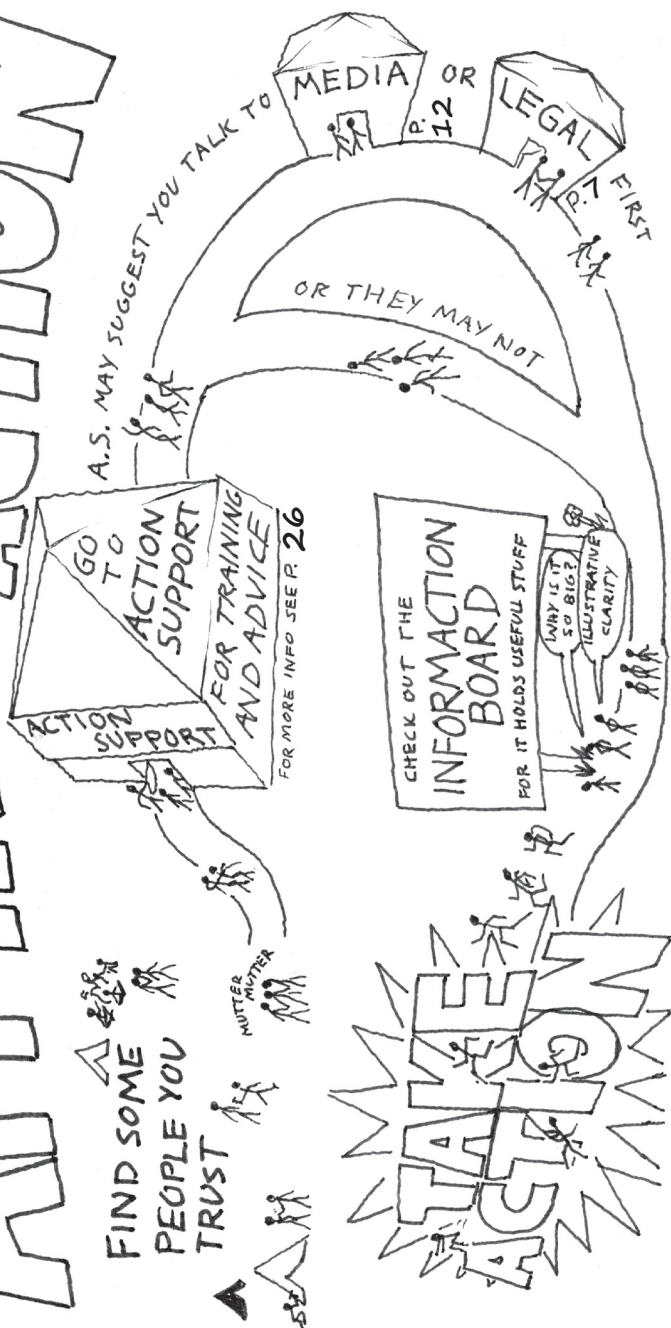 FIND SOME
PEOPLE YOU
TRUST
MUTTER
MUTTER
ACTION
SUPPORT
GO
TO
ACTION
SUPPORT
FOR TRAINING
AND ADVICE
FOR MORE INFO SEE P. 26
A.S. MAY SUGGEST YOU TALK TO
MEDIA
P. 12
OR
LEGAL
P. 7
FIRST
OR THEY MAY NOT
CHECK OUT THE
INFORMACTION
BOARD
FOR IT HOLDS USEFUL STUFF
WHY IS IT
SO BIG?
ILLUSTRATIVE
CLARITY
TAKE
ACTION